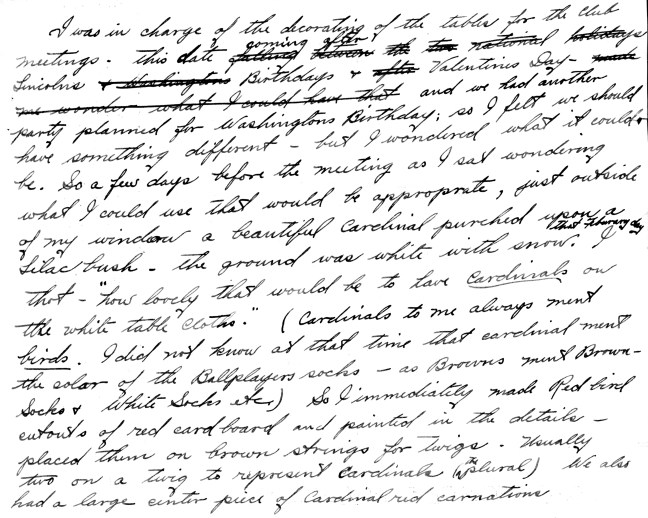 I was in charge of the decorating of the tables for the Club
meetings. this date falling coming after between the two national birthdays
Lincolns & Washingtons Birthdays & after Valentines Day - made
me wonder what I could have that and we had another
party planned for Washingtons Birthday; so I felt we should
have something different - but I wondered what it could
be. So a few days before the meeting as I sat wondering
what I could use that would be approprate, just outside
of my window a beautiful Cardinal purched upon a
Lilac bush - the ground was white with snow. that Feburary day I
thot - "how lovely that would be to have Cardinals on
the white table cloths." (Cardinals to me always ment
birds. I did not know at that time that cardinal ment
the color of the Ballplayers socks - as Browns ment Brown-
Socks & White Socks etc) So I immediately made Red bird
cutouts of red cardboard and painted in the details -
placed them on brown strings for twigs. Usually
two on a twig to represent Cardinals (plural) We also
had a large centerpiece of Cardinal red carnations